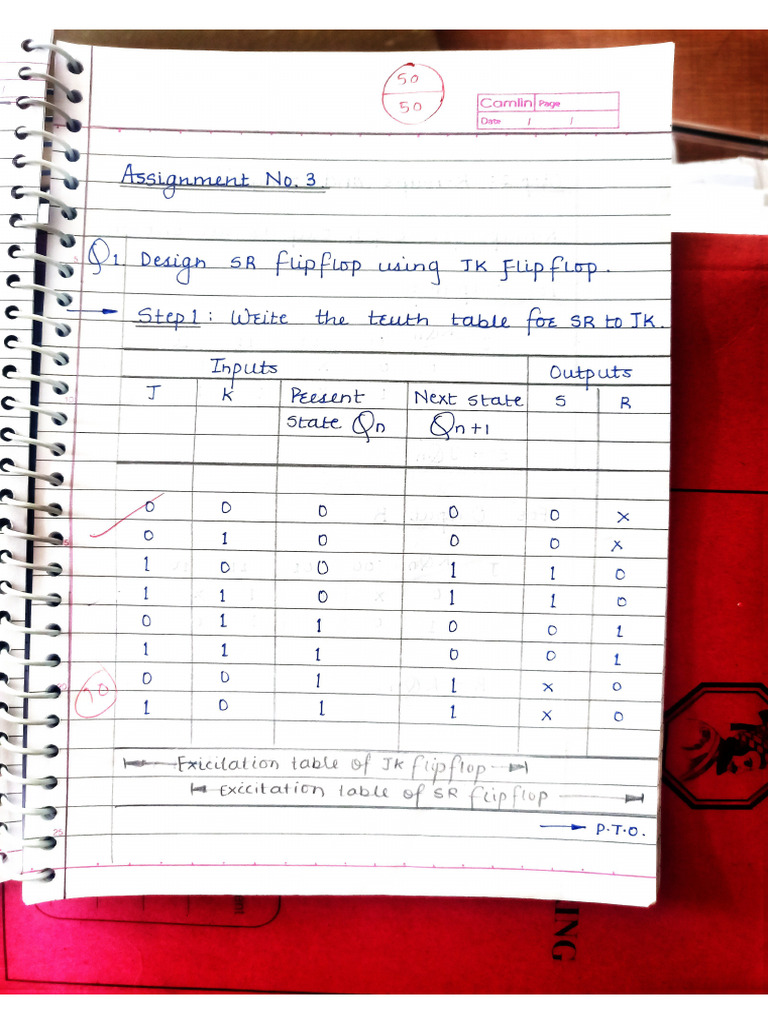 50
50
Camlin Page
Date / /
Assignment No. 3.
Q1. Design SR flipflop using JK flipflop.
→ Step 1: Write the truth table for SR to JK.
Inputs Outputs
J K Present Next state S R
state Qn Qn+1
0 0 0 0 0 x
0 1 0 0 0 x
1 0 0 1 1 0
1 1 0 1 1 0
0 1 1 0 0 1
1 1 1 0 0 1
0 0 1 1 x 0
10
1 0 1 1 x 0
Exicitation table of JK flipflop
Excicitation table of SR flipflop
25
→ P.T.O.
ING